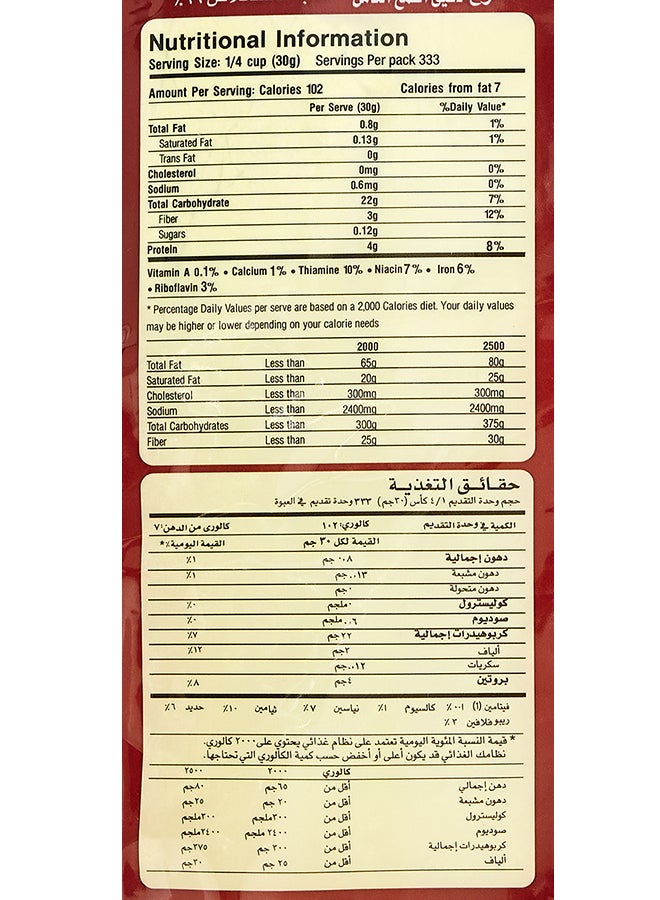 Nutritional Information
Serving Size: 1/4 cup (30g) Servings Per pack 333
Amount Per Serving: Calories 102 Calories from fat 7
Per Serve (30g) %Daily Value*
Total Fat 0.8g 1%
Saturated Fat 0.13g 1%
Trans Fat 0g
Cholesterol 0mg 0%
Sodium 0.6mg 0%
Total Carbohydrate 22g 7%
Fiber 3g 12%
Sugars 0.12g
Protein 4g 8%
Vitamin A 0.1% • Calcium 1% • Thiamine 10% • Niacin 7% • Iron 6%
• Riboflavin 3%
* Percentage Daily Values per serve are based on a 2,000 Calories diet. Your daily values
may be higher or lower depending on your calorie needs
2000 2500
Total Fat Less than 65g 80g
Saturated Fat Less than 20g 25g
Cholesterol Less than 300mg 300mg
Sodium Less than 2400mg 2400mg
Total Carbohydrates Less than 300g 375g
Fiber Less than 25g 30g
حقائق التغذية
حجم وحدة التقديم ٤/١ كأس (٣٠جم) ٣٣٣ وحدة تقديم في العبوة
الكمية في وحدة التقديم كالوري: ١٠٢ كالوري من الدهن: ٧
القيمة لكل ٣٠ جم القيمة اليومية٪*
دهون إجمالية ٠.٨ جم ١٪
دهون مشبعة ٠.١٣ جم ١٪
دهون متحولة ٠جم
كوليسترول ٠ملجم ٠٪
صوديوم ٠.٦ ملجم ٠٪
كربوهيدرات إجمالية ٢٢جم ٧٪
ألياف ٣جم ١٢٪
سكريات ٠.١٢ جم
بروتين ٤جم ٨٪
فيتامين (أ) ٠.١٪ كالسيوم ١٪ نياسين ٧٪ ثيامين ١٠٪ حديد ٦٪
ريبوفلافين ٣٪
* قيمة النسبة المئوية اليومية تعتمد على نظام غذائي يحتوي على ٢٠٠٠ كالوري.
نظامك الغذائي قد يكون أعلى أو أخفض حسب كمية الكالوري التي تحتاجها.
كالوري ٢٠٠٠ ٢٥٠٠
دهن إجمالي أقل من ٦٥جم ٨٠جم
دهون مشبعة أقل من ٢٠ جم ٢٥جم
كوليسترول أقل من ٣٠٠ملجم ٣٠٠ملجم
صوديوم أقل من ٢٤٠٠ ملجم ٢٤٠٠ملجم
كربوهيدرات إجمالية أقل من ٣٠٠ جم ٣٧٥جم
ألياف أقل من ٢٥ جم ٣٠جم